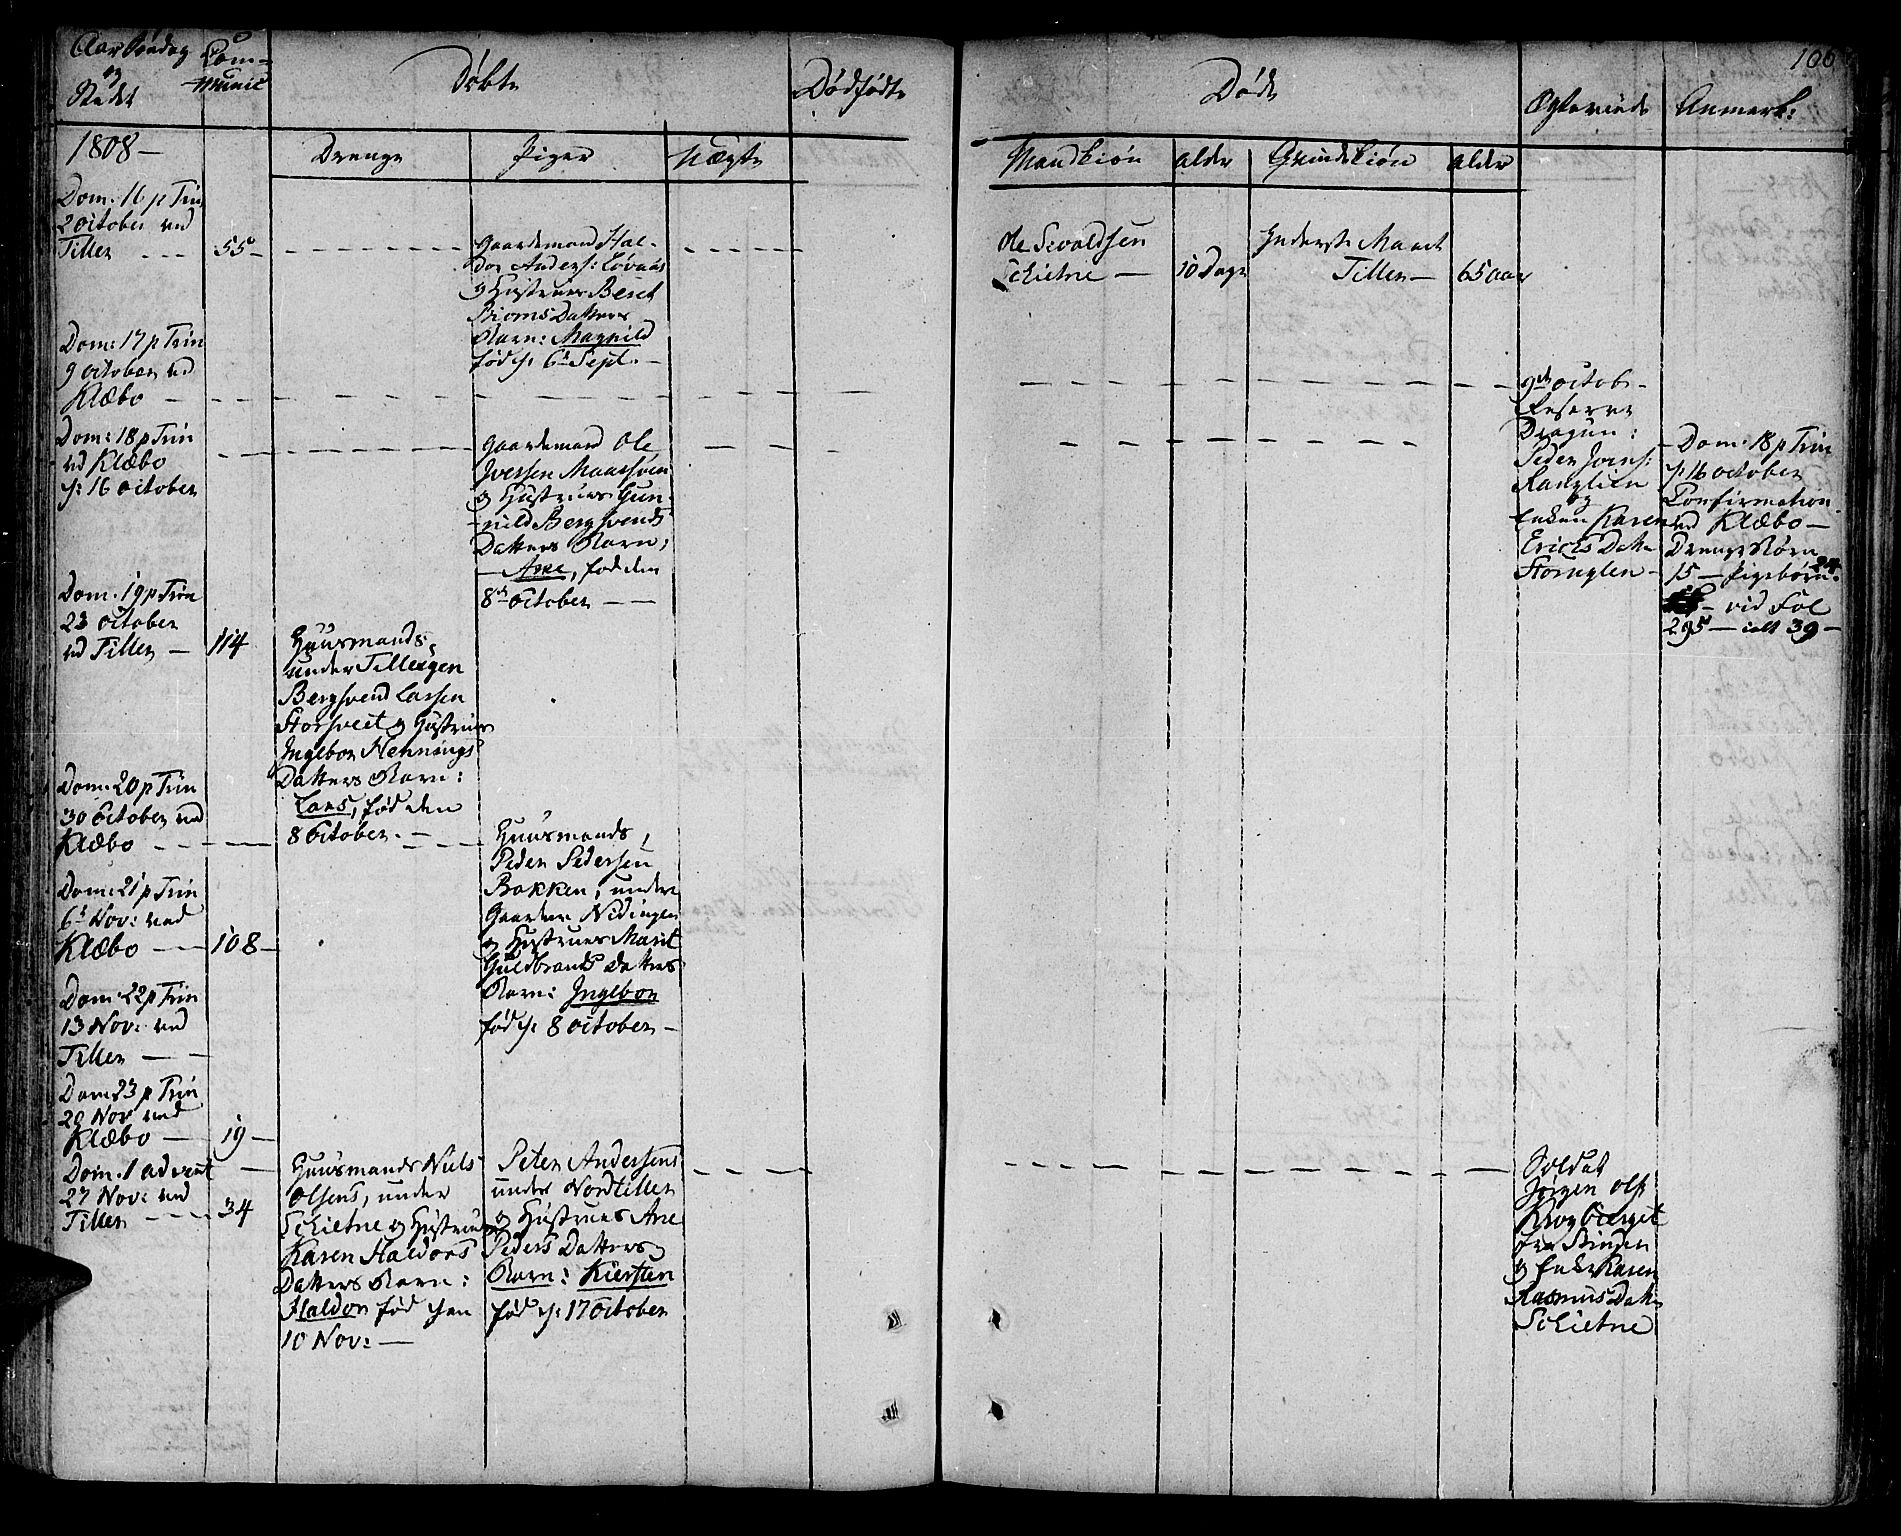 Aar Søndag
og
Stedet
Com-
munic
Døbte
Dødfødte
Døde
Egteviede
Anmerk:
106
1808 —
Drenge
Piger
Uægte
Mandkiøn
alder
Qvindekiøn
alder
Dom: 16 p Trin
2 October ved
Tiller — — —
55 —
Gaardmand Hal-
dor Anders: Løvaas
og Hustrues Beret
Biørns Datters
Barn: Magnild
fød d: 6te Sept. —
Ole Sivaldsen
Schietne —
10 Dage
Inderste Marit
Tiller —
65 aar
Dom: 17 p Trin
9 October ved
Klæbo —
9de Octob —
Reserve
Dragun:
Peder Joens:
Ranglien
og
Enken Karen
Ericks Datter
Storuglen —
Dom: 18 p Trin
ved Klæbo
d: 16 October
Gaardmand Ole
Iversen Maasøien
og Hustrues Gun-
nild Bergsvends
Datters Barn:
— Ane, fød den
8de October — —
Dom: 18 p Trin
d: 16 October
Confirmation
ved Klæbo —
Drenge Børn
15 — Pigebørn 24
— vid Fol
295 — ialt 39 —
Dom: 19 p Trin
23 October
ved Tiller —
114
Huusmands,
under Tillerigen
Bergsvend Larsen
Storsveet og Hustrues
Ingebor Hennings
Datters Barn:
Lars, fød den
8 October. —
Dom: 20 p Trin
30 October ved
Klæbo — — —
Huusmands,
Peder Pedersen
Bakken, under
Gaarden Nidingen
og Hustrues Marit
Guldbrands Datters
Barn: Ingebor
fød d: 8 October —
Dom: 21 p Trin
6te Nov: ved
Klæbo — —
108 —
Dom: 22 p Trin
13 Nov: ved
Tiller — —
Dom 23 p Trin
20 Nov ved
Klæbo —
19 —
Dom. 1 Advent
27 Nov: ved
Tiller — — —
34
Huusmands Niels
Olsens, under
Schietne og Hustrues
Karen Haldors
Datters Barn:
Haldor fød den
10 Nov: —
Peter Andersens
under Nordtiller
og Hustrues Ane
Peders Datters
Barn: Kiersten
fød d: 17 October
Soldat
Jørgen Ols:
Krogberget
fra Stinden
og Enke Karen
Rasmus Datter
Schietne